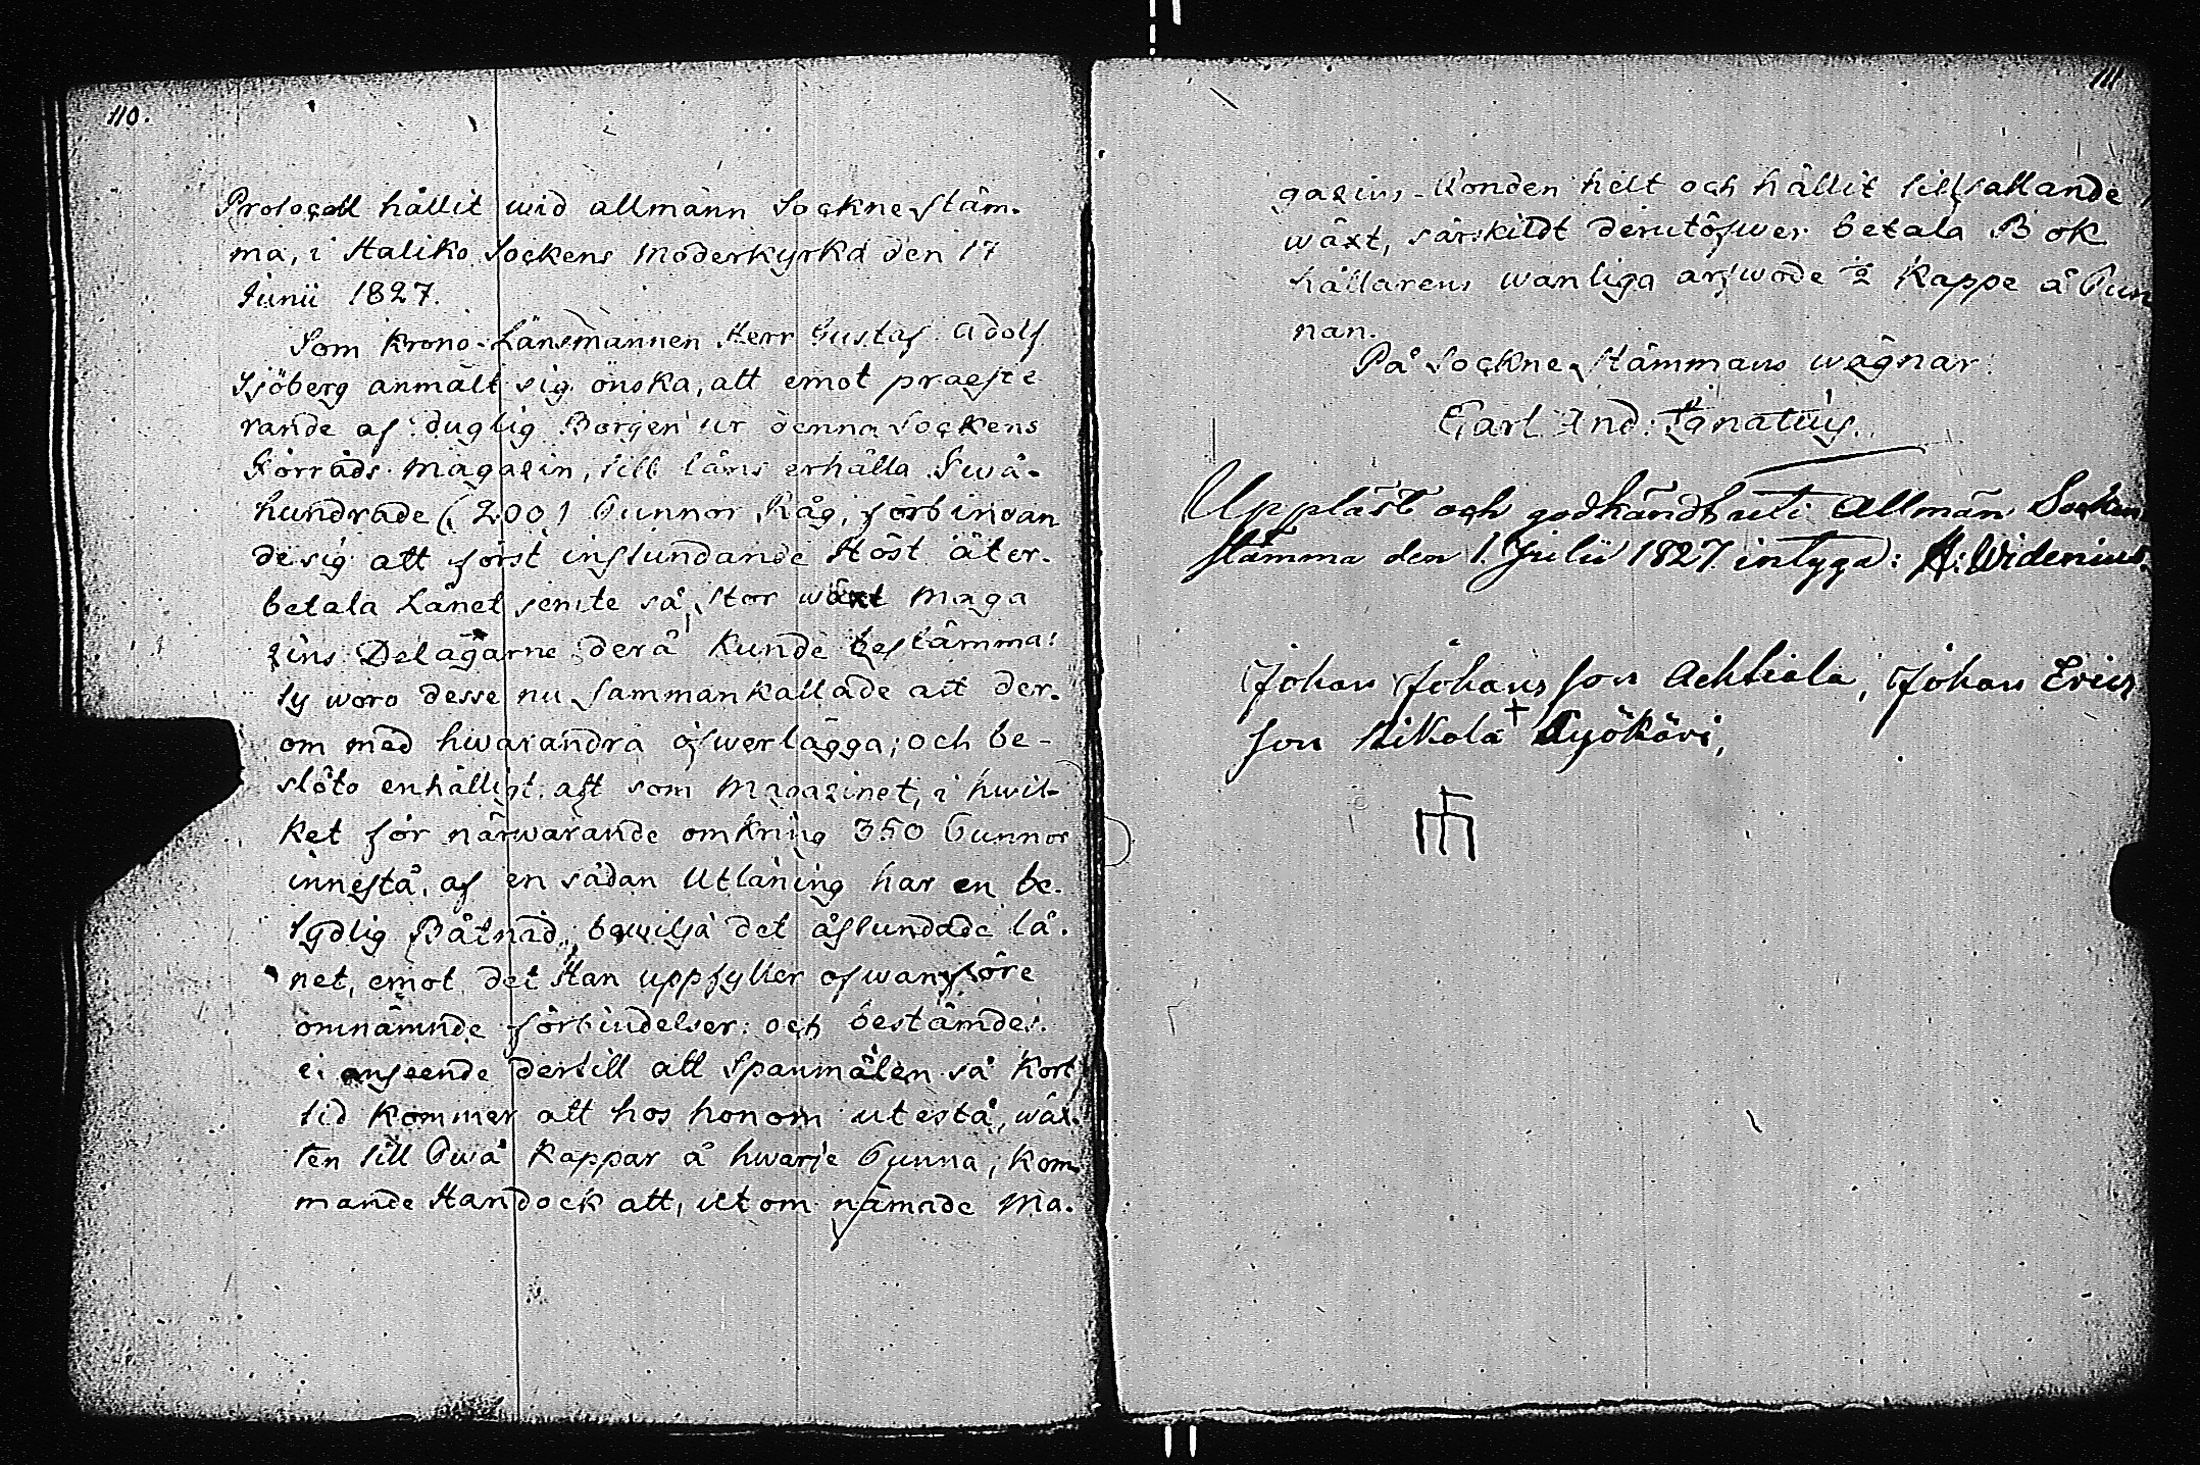 110.
Protocoll hållit wid allmänn Sockne stäm-
ma, i Haliko Sockens Moderkyrka den 17
Junii 1827.
Som Krono-Länsmannen Herr Gustaf Adolf
Sjöberg anmält sig önska, att emot praeste
rande af duglig Borgen ur denna Sockens
Förråds-Magazin, till låns erhålla Twå-
hundrade (200) Tunnor Råg, förbindan
de sig att först instundande Höst åter-
betala Lånet jemte så stor wäxt Maga
zins Delägarne derå kunde bestämma:
Ty woro desse nu sammankallade att der-
om med hwarandra öfwerlägga; och be-
slöto enhälligt: att som Magazinet, i hwil-
ket för närwarande omkring 350 Tunnor
innestå, af en sådan Utlåning har en be-
tydlig Båtnad, bewilja det åstundade lå-
net, emot det Han uppfyller ofwanföre
omnämnde förbindelser: och bestämdes
i anseende dertill att Spanmålen så kort
tid kommer att hos honom utestå, wäx-
ten till Twå Kappar å hwarje Tunna, kom-
mande Han dock att, utom nämnde Ma-
111
gazins-Fonden helt och hållit tillfallande
wäxt, särskildt derutöfwer betala Bok
hållarens wanliga arfwode ½ Kappe å Tun
nan.
På Sockne Stämmans wägnar:
Carl And: Ignatius.
Uppläst och godkändt uti Allmän Socken
stämma den 1. Julii 1827 intyga: H: Widenius.
Johan Johansson Achtiala, Johan Erics
son Kikola + Työköri,